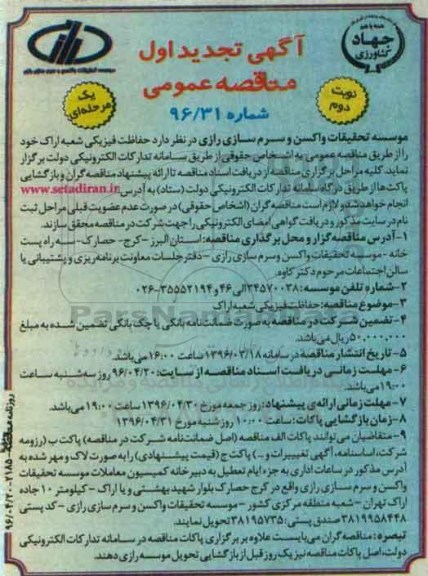 جهاد
کشاورزی
آگهی تجدید اول
مناقصه عمومی
شماره ۹۶/۳۱
نوبت
دوم
یک
مرحله‌ای
موسسه تحقیقات واکسن و سرم سازی رازی در نظر دارد حفاظت فیزیکی شعبه اراک خود
را از طریق مناقصه عمومی به اشخاص حقوقی از طریق سامانه تدارکات الکترونیکی دولت برگزار
نماید. کلیه مراحل برگزاری مناقصه از دریافت اسناد مناقصه تا ارائه پیشنهاد مناقصه گران و بازگشایی
پاکت‌ها از طریق درگاه سامانه تدارکات الکترونیکی دولت (ستاد) به آدرس www.setadiran.ir
انجام خواهد شد و لازم است مناقصه گران (اشخاص حقوقی) در صورت عدم عضویت قبلی مراحل ثبت
نام در سایت مذکور و دریافت گواهی امضای الکترونیکی را جهت شرکت در مناقصه محقق سازند.
۱-آدرس مناقصه گزار و محل برگذاری مناقصه: استان البرز -کرج- حصارک- سه راه پست
خانه - موسسه تحقیقات واکسن و سرم سازی رازی - دفتر جلسات معاونت برنامه ریزی و پشتیبانی یا
سالن اجتماعات مرحوم دکتر کاوه.
۲-شماره تلفن موسسه: ۳۴۵۷۰۰۳۸ الی ۴۶ و ۳۵۵۵۲۱۹۴-۰۲۶
۳-موضوع مناقصه: حفاظت فیزیکی شعبه اراک
۴-تضمین شرکت در مناقصه به صورت ضمانت نامه بانکی یا چک بانکی تضمین شده به مبلغ
۵۰,۰۰۰,۰۰۰ ریال می باشد.
۵- تاریخ انتشار مناقصه در سامانه ۱۳۹۶/۰۳/۱۸ ساعت ۱۶:۰۰ می باشد.
۶-مهلت زمانی دریافت اسناد مناقصه از سایت: ۹۶/۰۴/۲۰ روز سه شنبه ساعت
۱۹:۰۰ می باشد.
۷-مهلت زمانی ارائه ی پیشنهاد: روز جمعه مورخ ۱۳۹۶/۰۴/۳۰ ساعت ۱۹:۰۰ می باشد.
۸-زمان بازگشایی پاکات: ساعت ۱۰:۰۰ روز شنبه مورخ ۱۳۹۶/۰۴/۳۱
۹-متقاضیان می توانند پاکات الف مناقصه (اصل ضمانتنامه شرکت در مناقصه) پاکت ب (رزومه
شرکت، اساسنامه، آگهی تغییرات و ..) پاکت ج (قیمت پیشنهادی) را به صورت لاک و مهر شده به
آدرس مذکور در ساعات اداری به جزء ایام تعطیل به دبیرخانه کمیسیون معاملات موسسه تحقیقات
واکسن و سرم سازی رازی واقع در کرج حصارک بلوار شهید بهشتی و یا اراک - کیلومتر ۱۰ جاده
اراک تهران - شعبه منطقه مرکزی کشور - موسسه تحقیقات واکسن و سرم سازی رازی - کد پستی
۳۸۱۹۹۵۸۴۴۸ صندوق پستی: ۳۸۱۹۵۷۳۵ تحویل نمایند.
تبصره: مناقصه گران می بایست علاوه بر برگزاری پاکات مناقصه در سامانه تدارکات الکترونیکی
دولت، اصل پاکات مناقصه نیز یک روز قبل از بازگشایی تحویل موسسه رازی دهند.
ParsNamadData